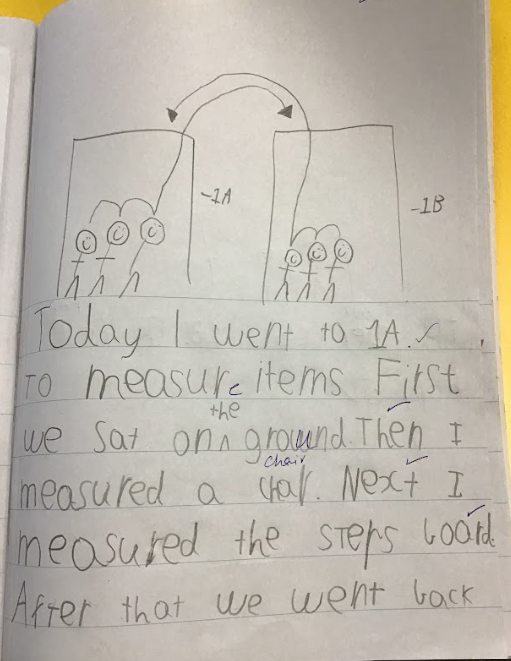 -1A
-1B
Today I went to 1A.
To measure items First
the
we sat on ground. Then I
chair
measured a . Next I
measured the steps board.
After that we went back